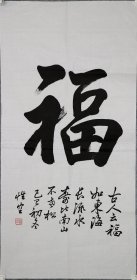 福
古人云福
如東海
長流水
壽比南山
不老松
己丑初冬
惟空